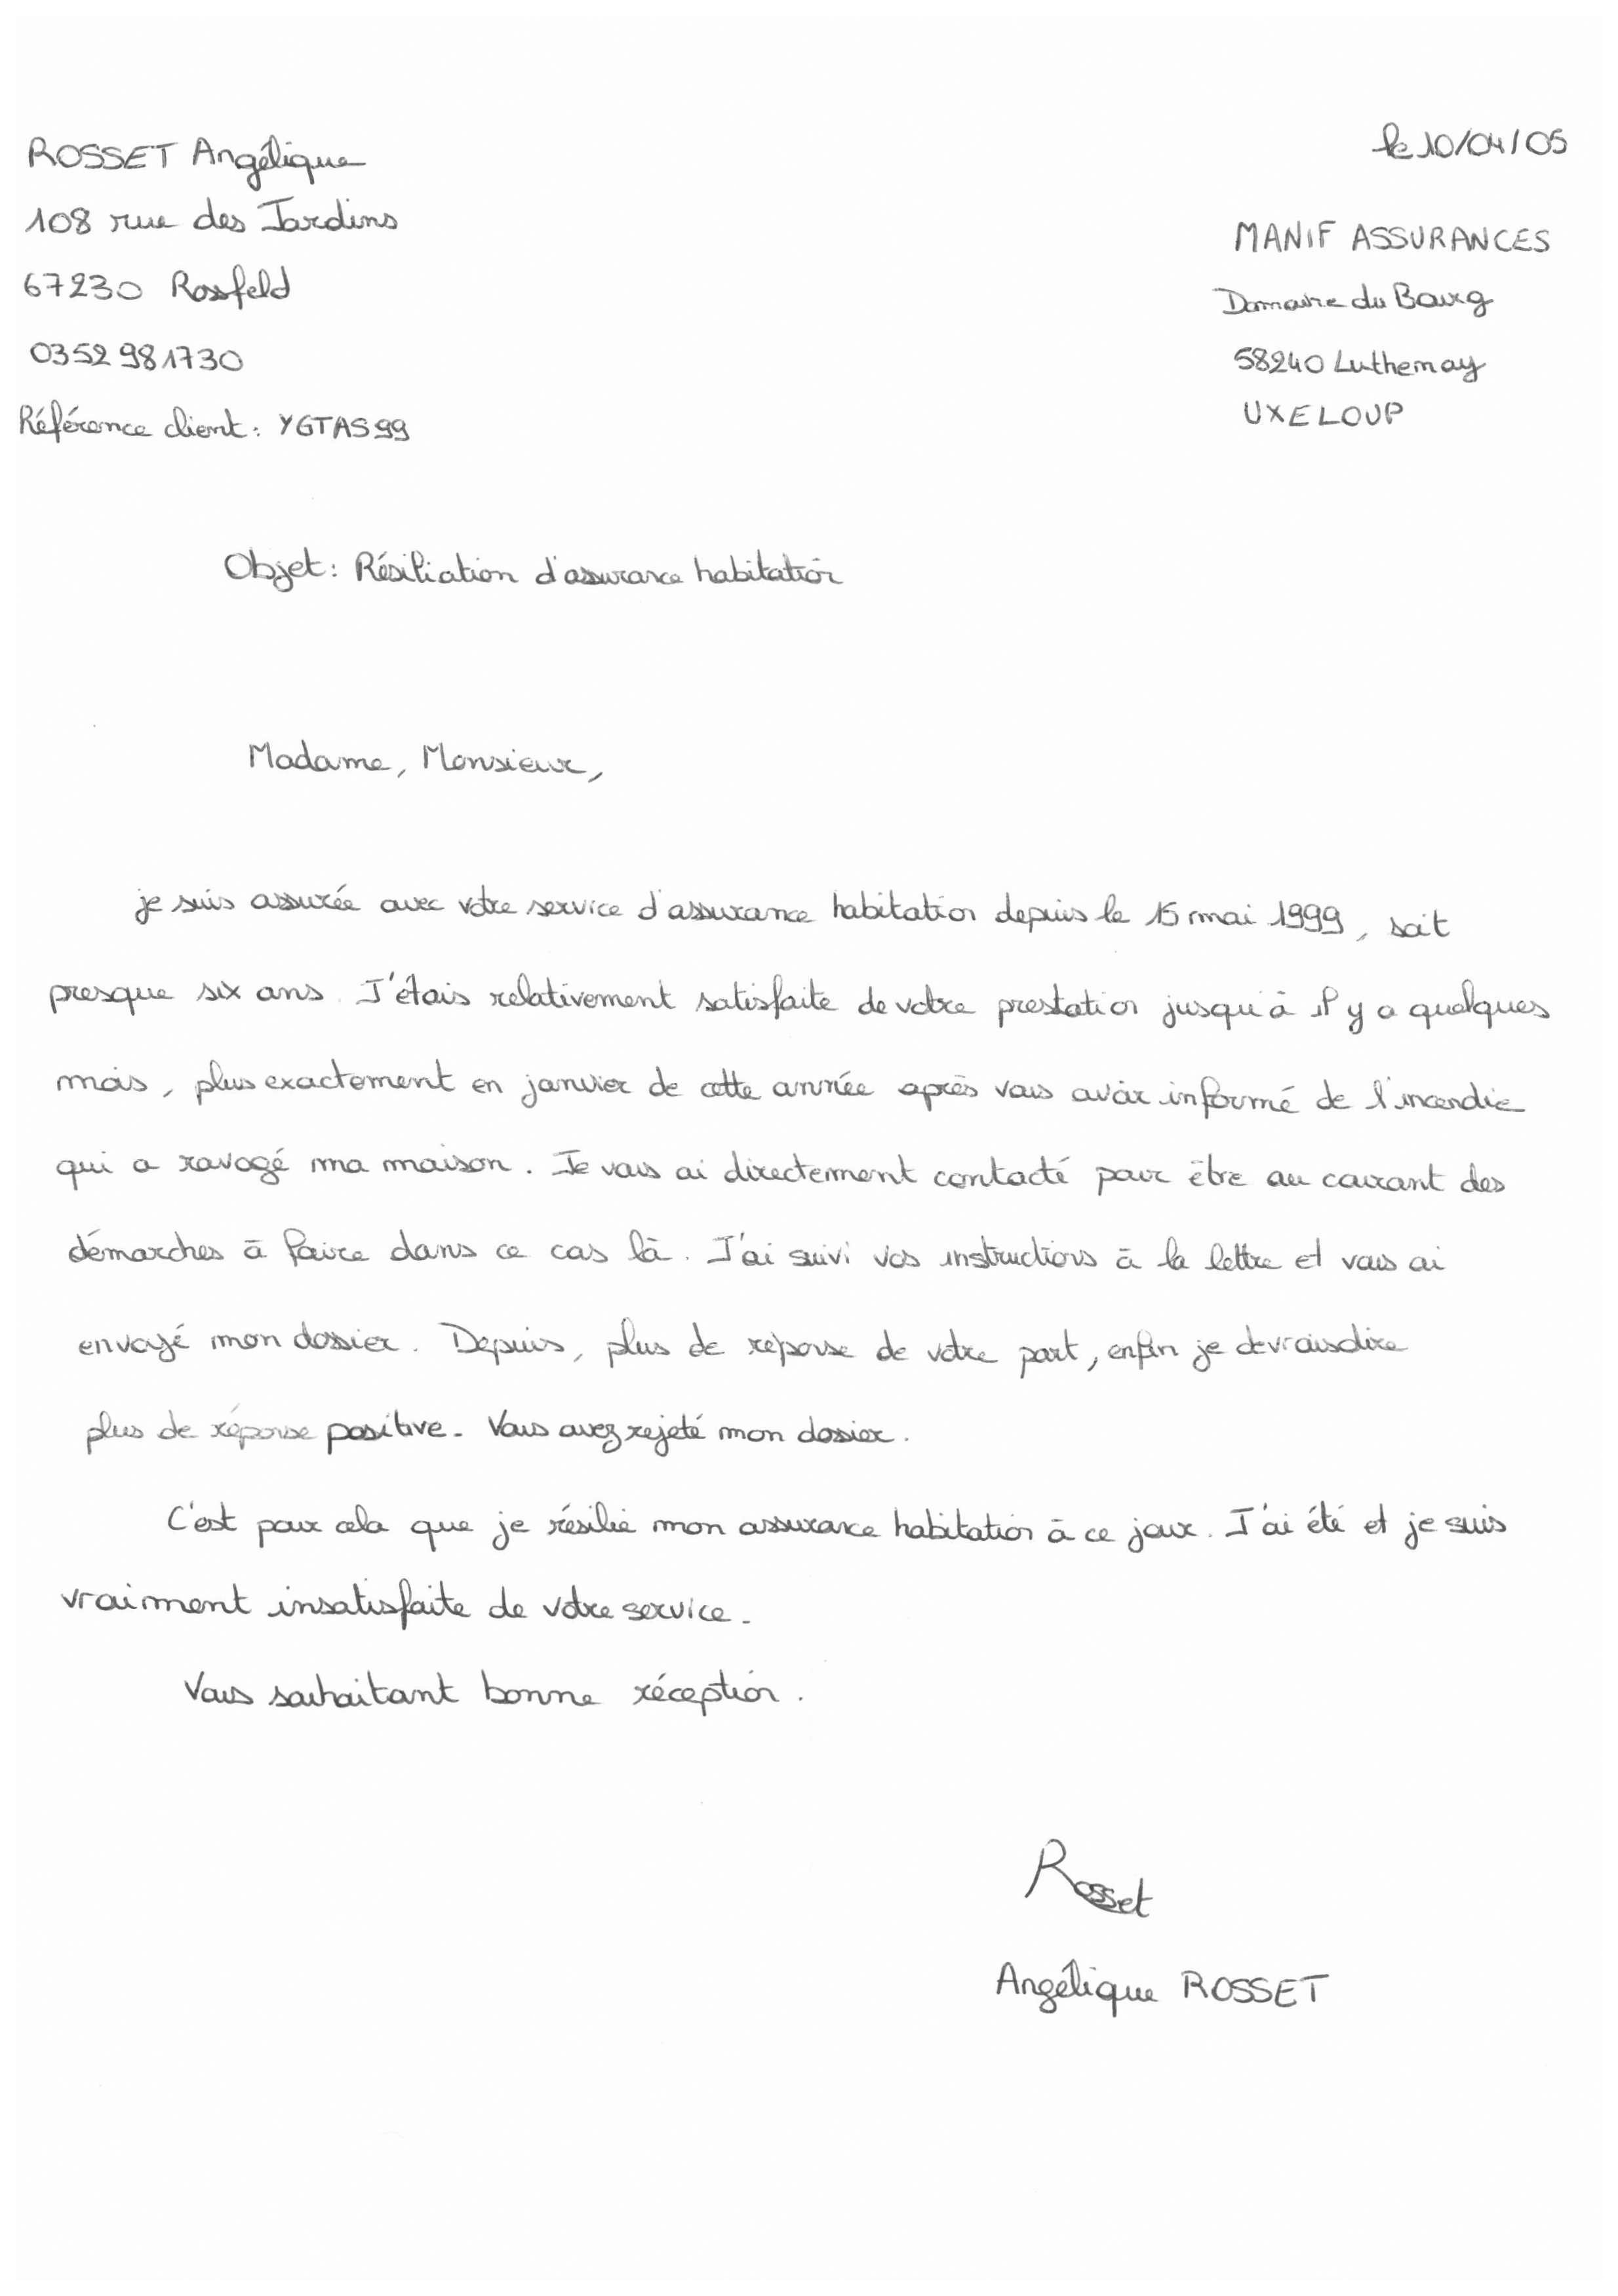 ROSSET Angélique
108 rue des Jardins
67230 Rossfeld
0352981730
Référence client : YGTAS99
le 10/04/05
MANIF ASSURANCES
Domaine du Bourg
58240 Luthenay
UXELOUP
Objet : Résiliation d'assurance habitation
Madame, Monsieur,
je suis assurée avec votre service d'assurance habitation depuis le 15 mai 1999, soit
presque six ans. J'étais relativement satisfaite de votre prestation jusqu'à il y a quelques
mois, plus exactement en janvier de cette année après vous avoir informé de l'incendie
qui a ravagé ma maison. Je vous ai directement contacté pour être au courant des
démarches à faire dans ce cas là. J'ai suivi vos instructions à la lettre et vous ai
envoyé mon dossier. Depuis, plus de réponse de votre part, enfin je devrais dire
plus de réponse positive. Vous avez rejeté mon dossier.
C'est pour cela que je résilie mon assurance habitation à ce jour. J'ai été et je suis
vraiment insatisfaite de votre service.
Vous souhaitant bonne réception.
Rosset
Angélique ROSSET